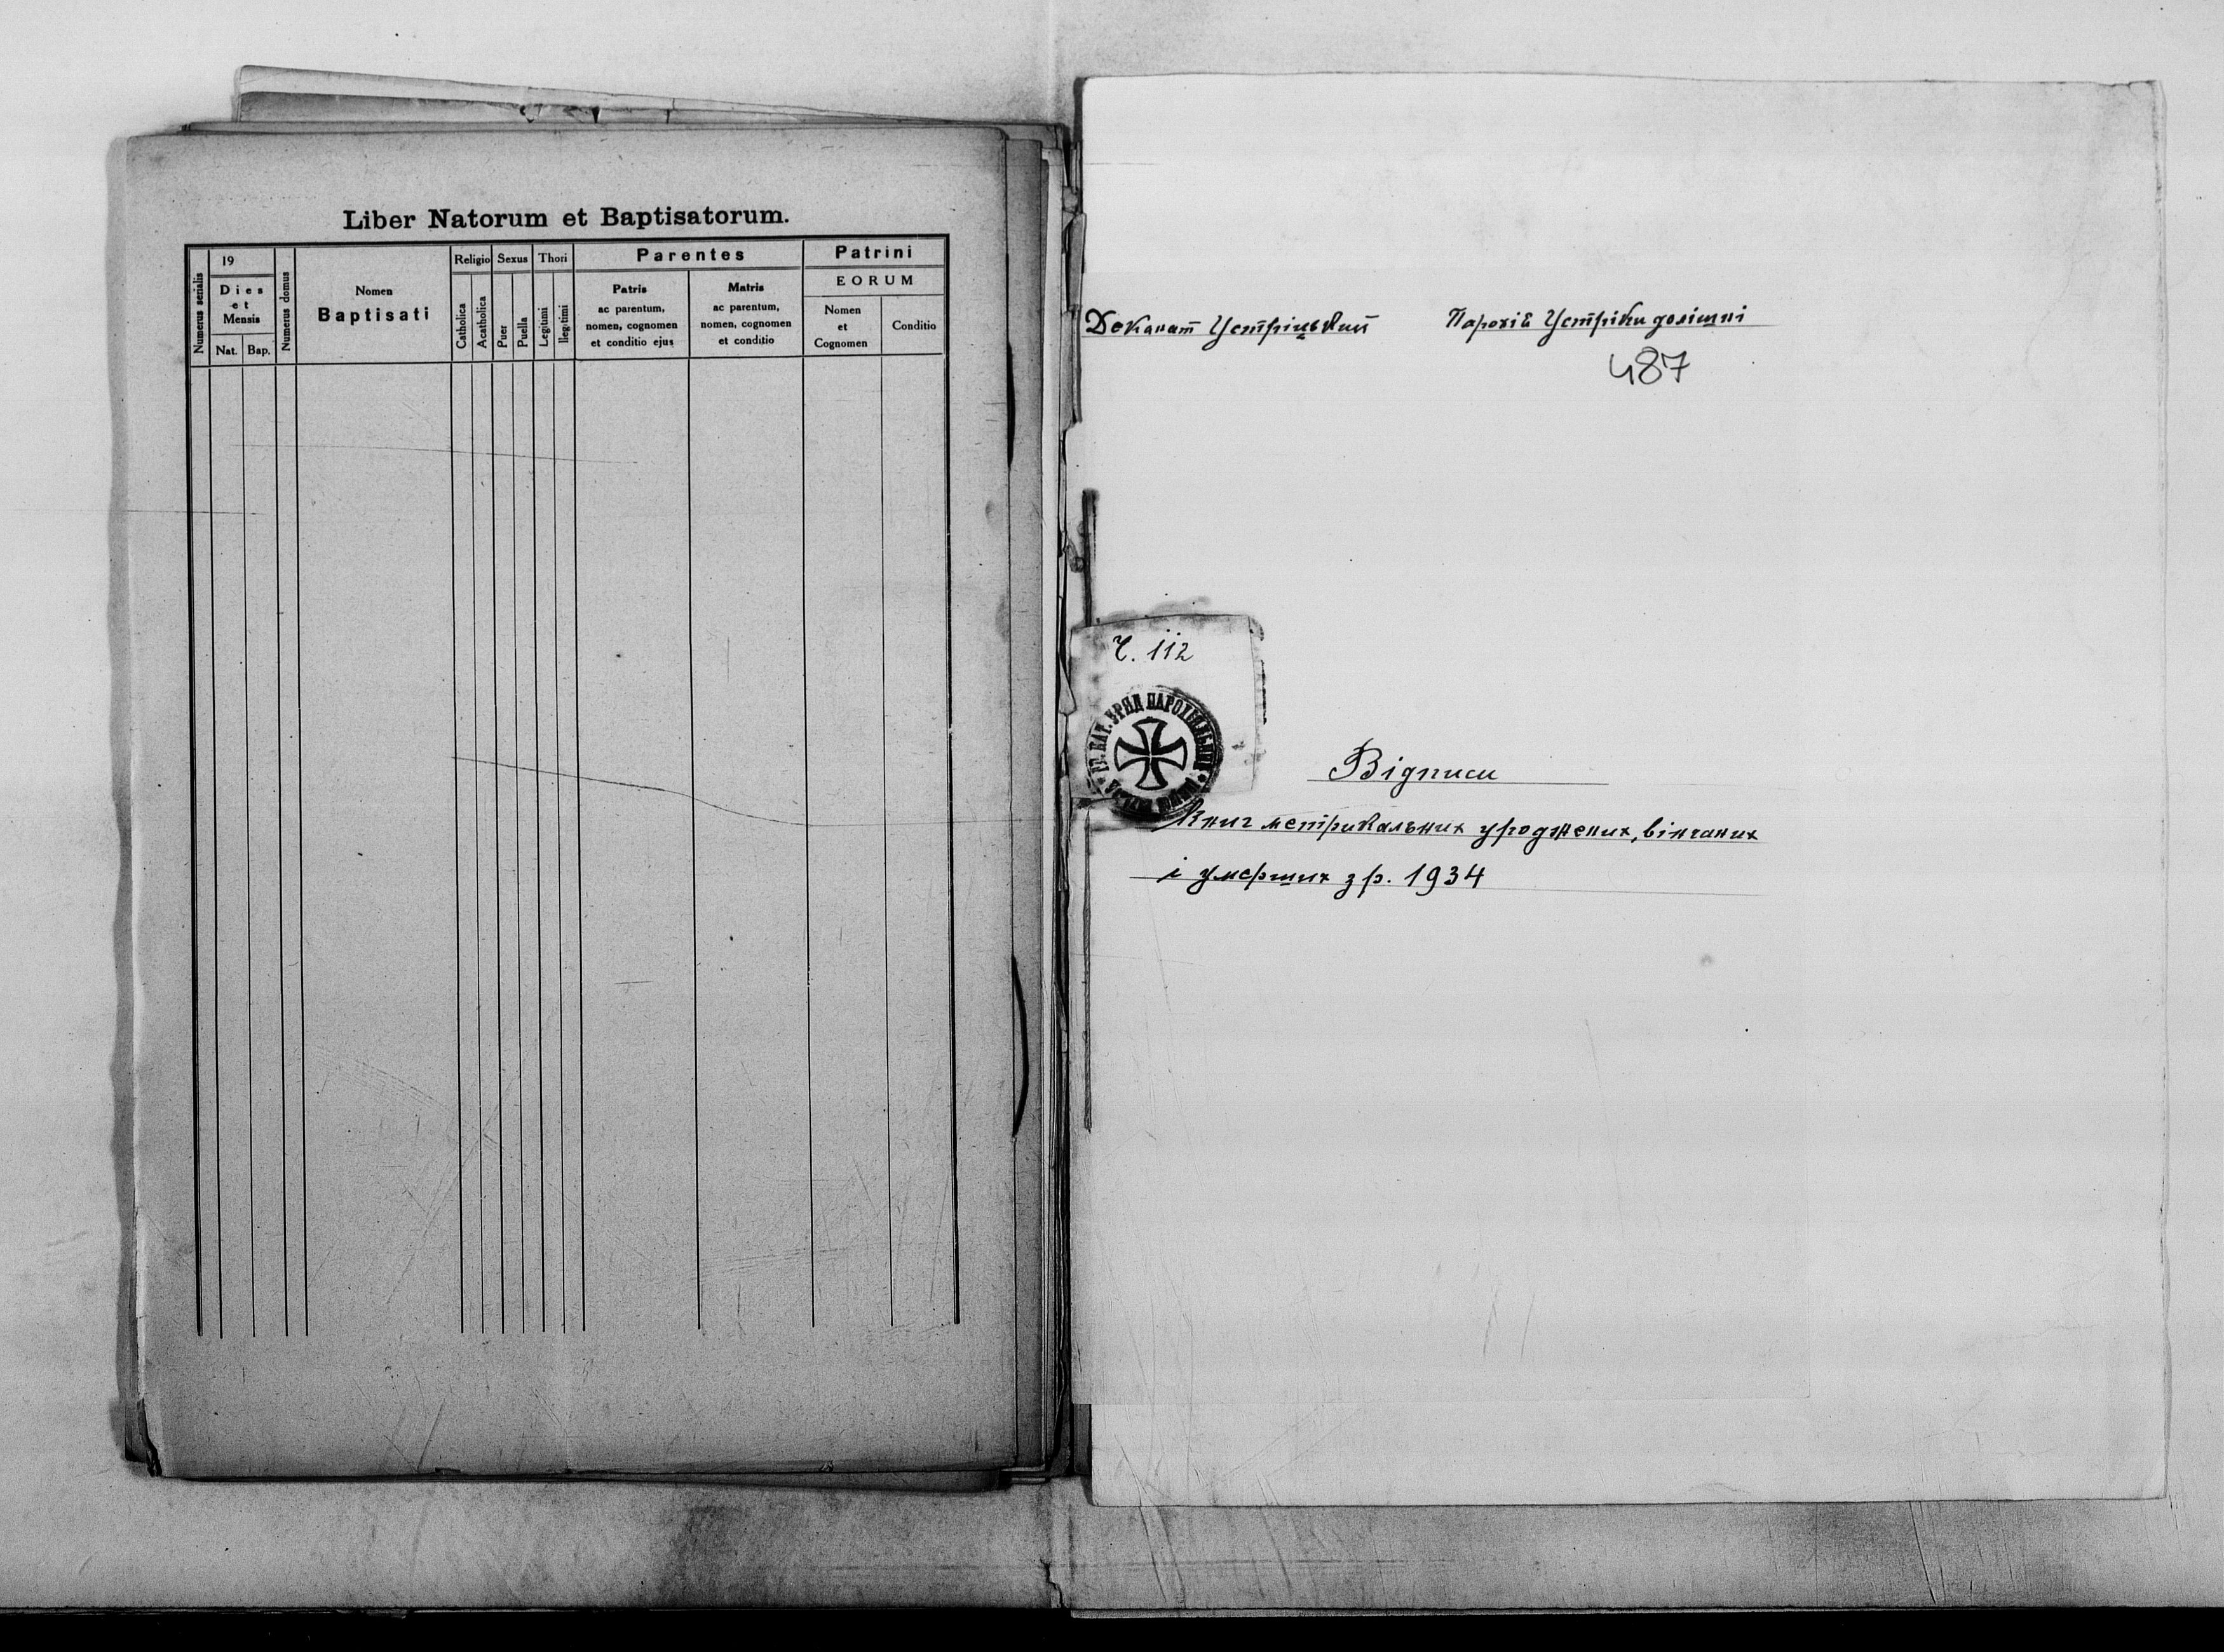 Liber Natorum et Baptisatorum.
Numerus serialis
19
Dies
et
Mensis
Nat. Bap.
Numerus domus
Nomen
Baptisati
Religio
Catholica
Acatholica
Sexus
Puer
Puella
Thori
Legitimi
Illegitimi
Parentes
Patris
ac parentum,
nomen, cognomen
et conditio ejus
Matris
ac parentum,
nomen, cognomen
et conditio
Patrini
EORUM
Nomen
et
Cognomen
Conditio
Деканат Устріцький Парохія Устріки долішні
487
Ч. 112
ГР. КАТ. УРЯД ПАРОХІЯЛЬНИЙ
Відписи
Книг метрикальних уроджених, вінчаних
і умерших з р. 1934